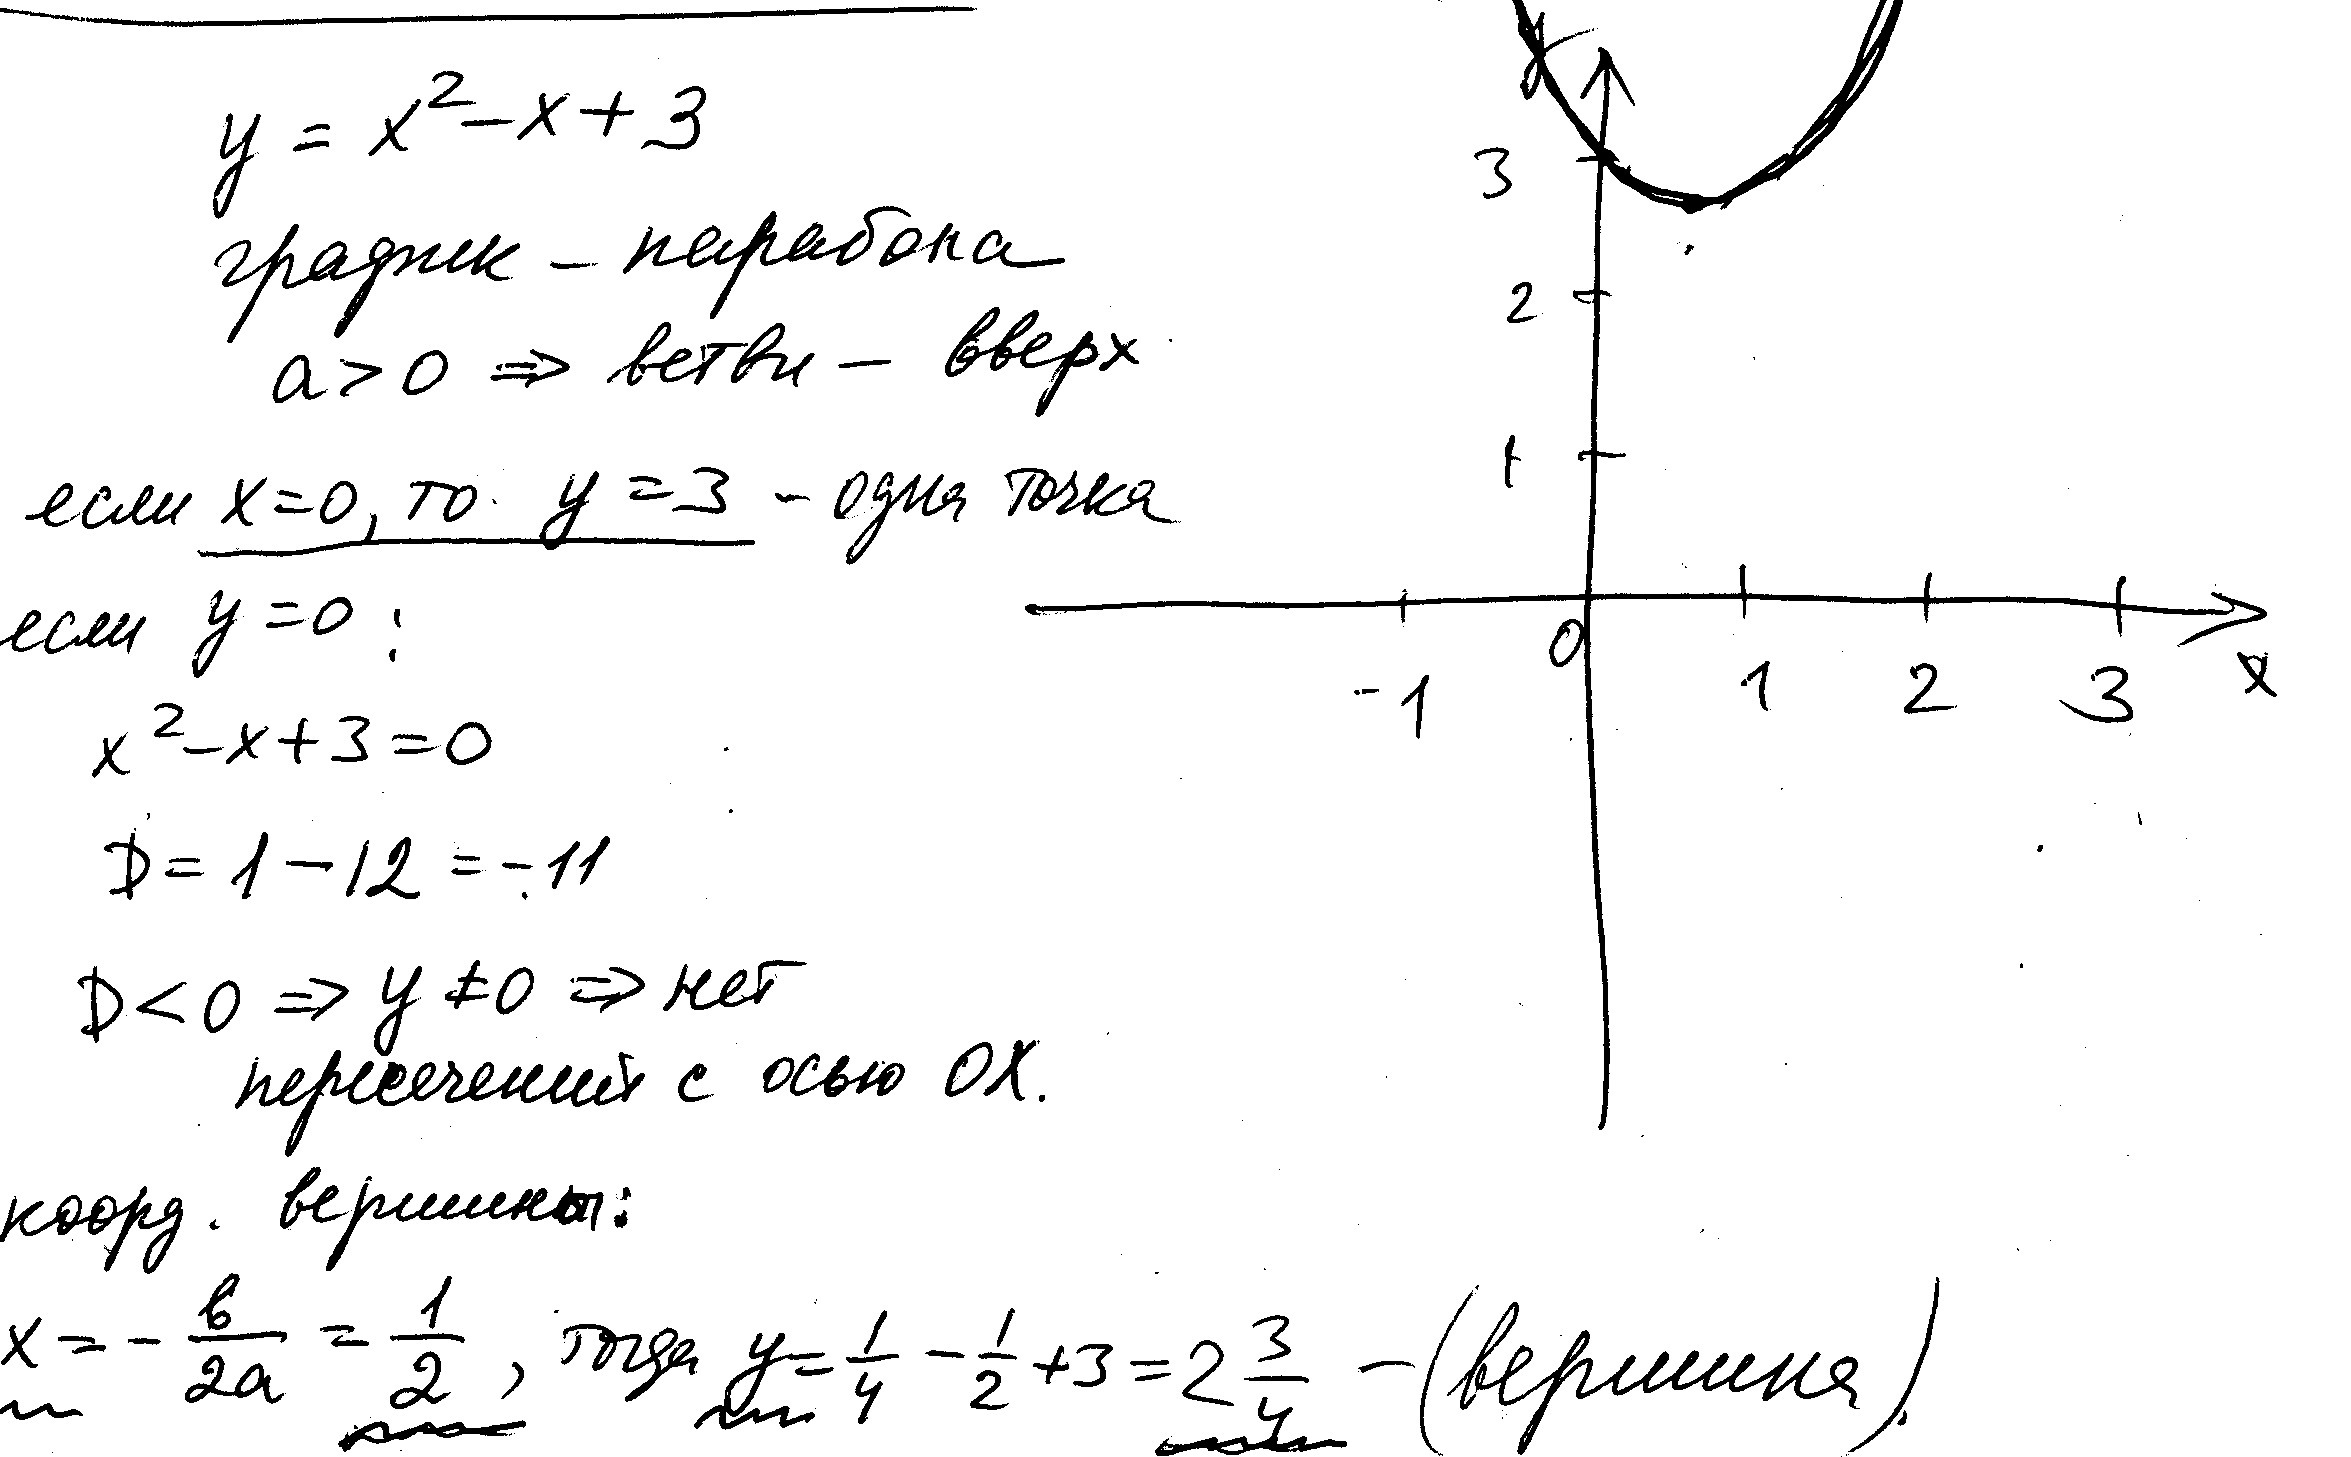 y = x² - x + 3
график - парабола
a > 0 ⇒ ветви - вверх
если x = 0, то y = 3 - одна точка
если y = 0 :
x² - x + 3 = 0
D = 1 - 12 = -11
D < 0 ⇒ y ≠ 0 ⇒ нет
пересечений с осью OX.
коорд. вершины:
x = - в/2a = 1/2, тогда y = 1/4 - 1/2 + 3 = 2 3/4 - (вершина).
y
3
2
1
0
-1 1 2 3 x